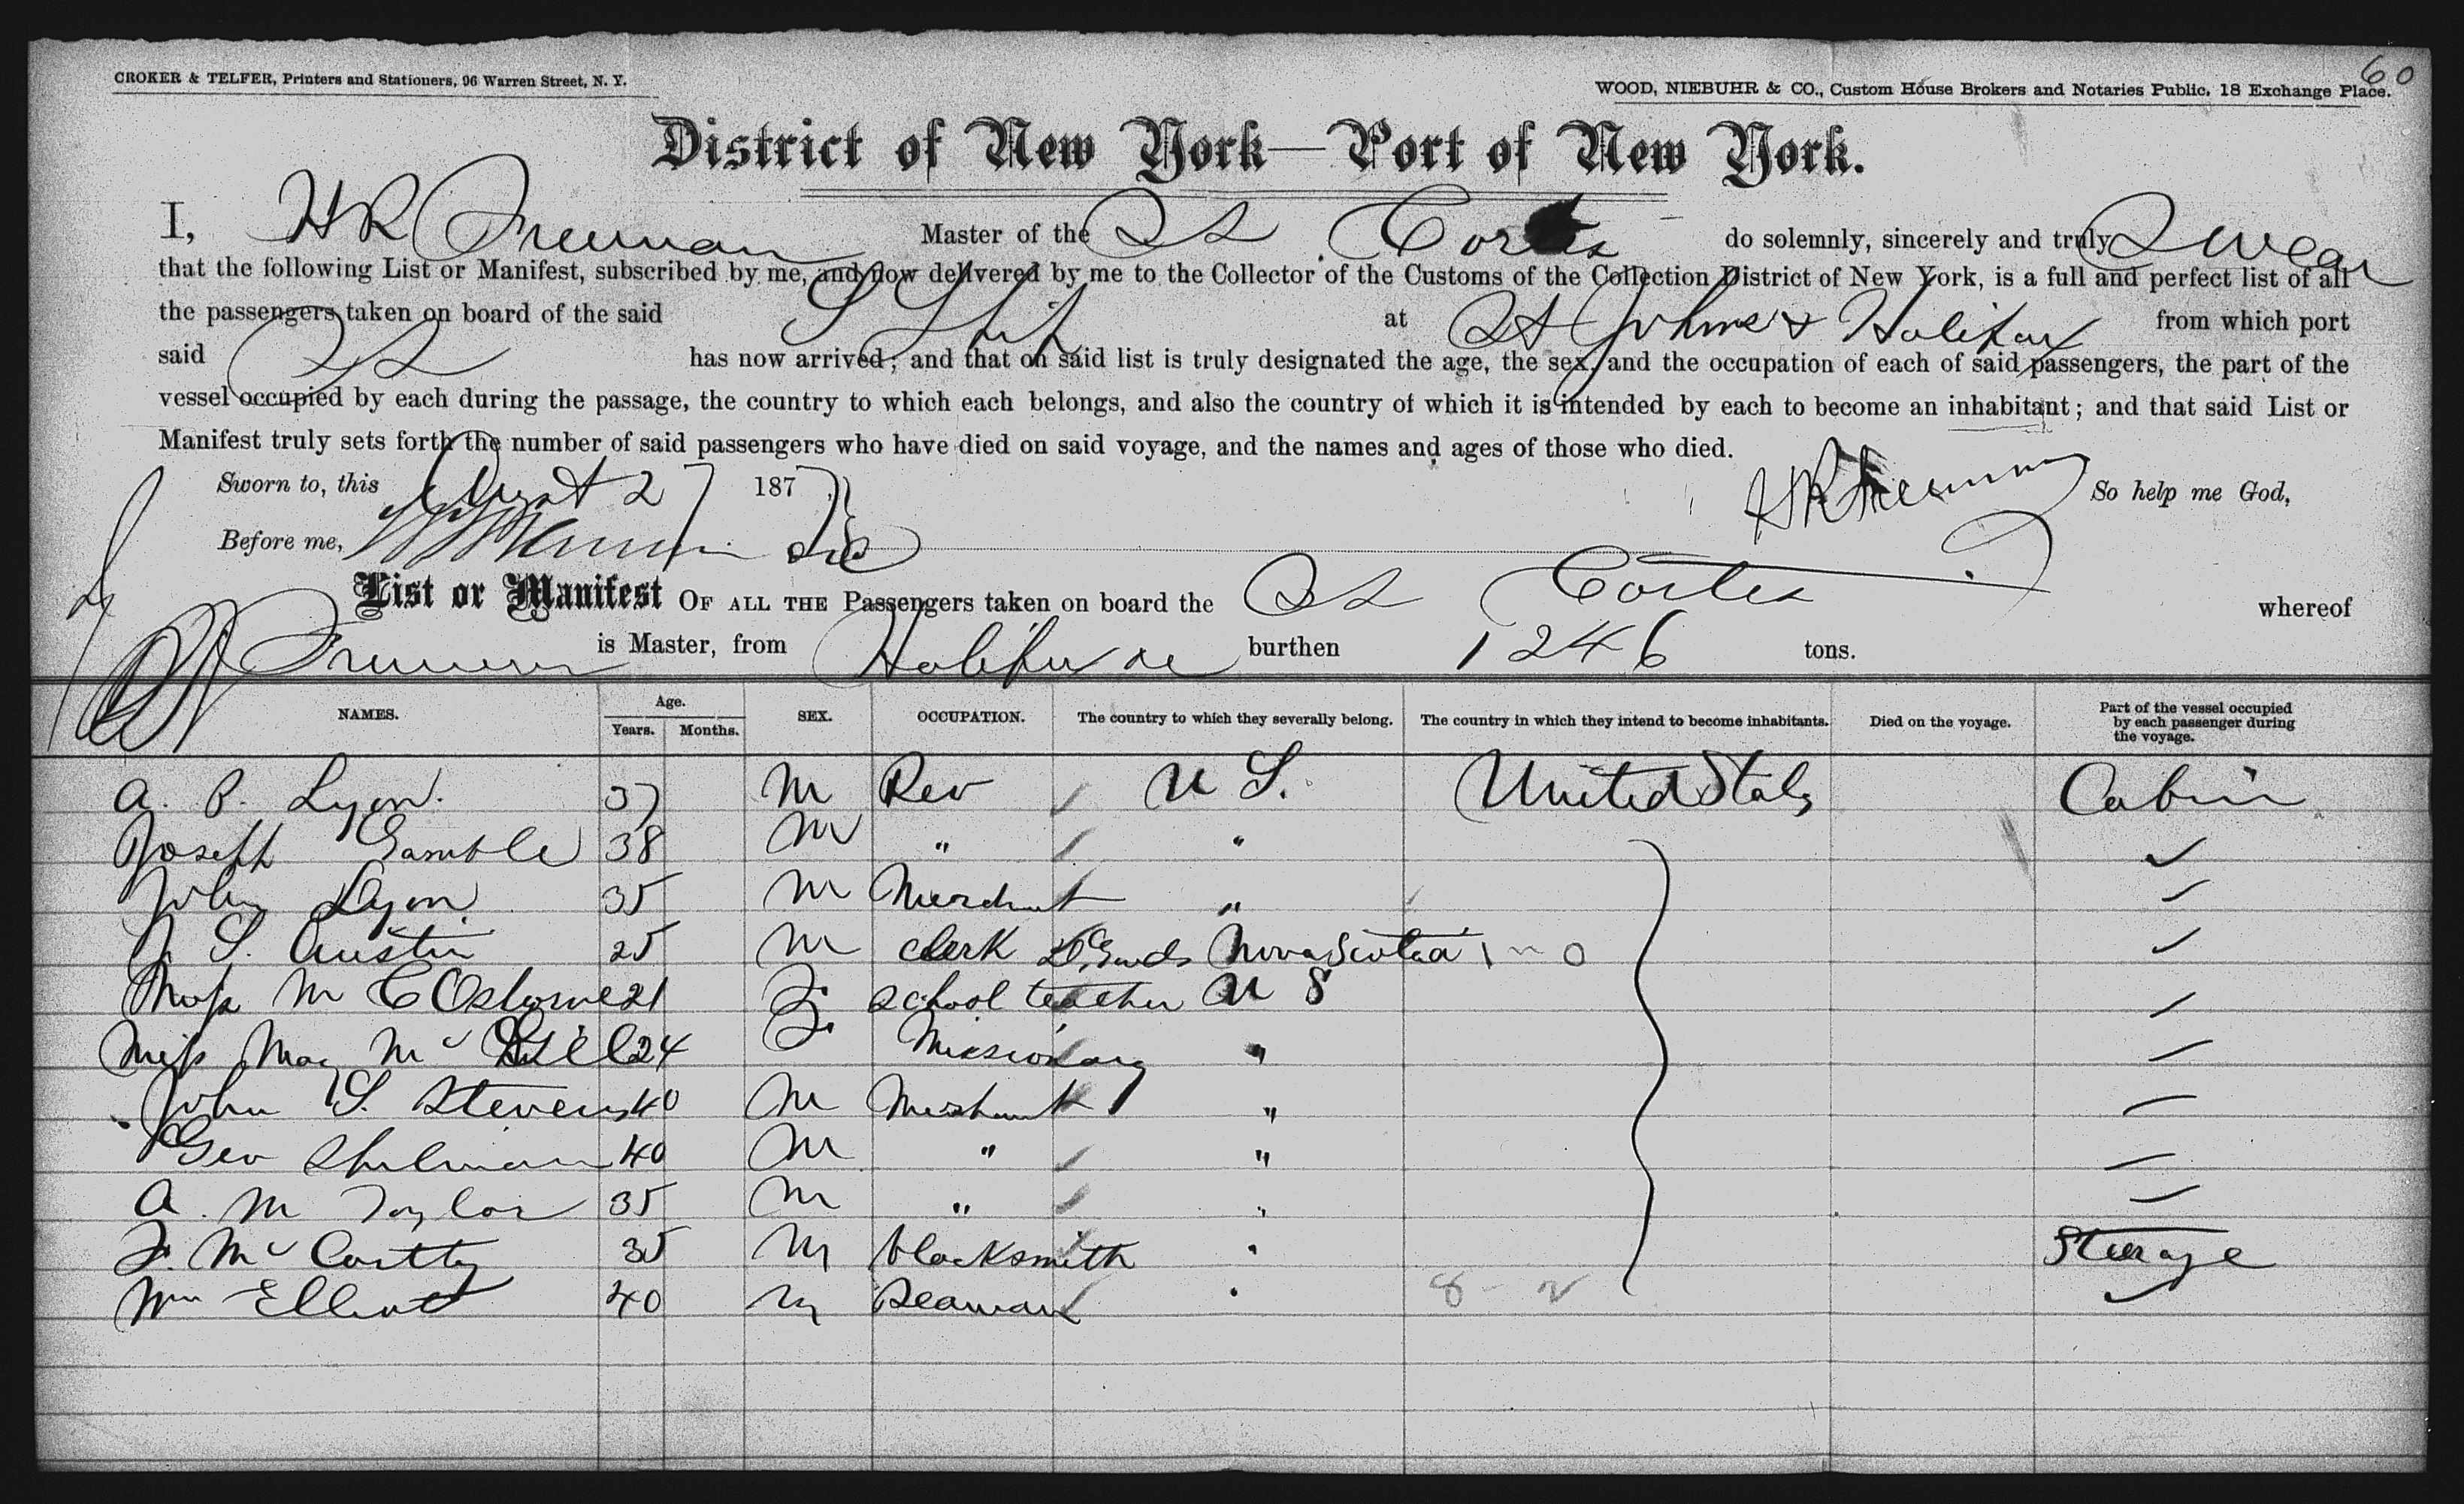 60
CROKER & TELFER, Printers and Stationers, 96 Warren Street, N. Y. WOOD, NIEBUHR & CO., Custom House Brokers and Notaries Public, 18 Exchange Place.
District of New York—Port of New York.
I, H R Freeman Master of the SS Cortes do solemnly, sincerely and truly Swear
that the following List or Manifest, subscribed by me, and now delivered by me to the Collector of the Customs of the Collection District of New York, is a full and perfect list of all
the passengers taken on board of the said S Ship at St Johns & Halifax from which port
said SS has now arrived; and that on said list is truly designated the age, the sex, and the occupation of each of said passengers, the part of the
vessel occupied by each during the passage, the country to which each belongs, and also the country of which it is intended by each to become an inhabitant; and that said List or
Manifest truly sets forth the number of said passengers who have died on said voyage, and the names and ages of those who died.
Sworn to, this August 27 187 HR Freeman So help me God,
Before me,
List or Manifest OF ALL THE Passengers taken on board the SS Cortes whereof
Freeman is Master, from Halifax burthen 1246 tons.
NAMES. Age. Years. Months. SEX. OCCUPATION. The country to which they severally belong. The country in which they intend to become inhabitants. Died on the voyage. Part of the vessel occupied by each passenger during the voyage.
A. P. Lyon. 37 M Rev U S. United States Cabin
Joseph Gamble 38 M " " ✓
John Lyon 35 M Merchant " ✓
S. Austin 25 M Clerk Nova Scotia ✓
Miss M C Osborne 21 F School teacher U S ✓
Miss Mag Mc 24 F Missionary " ✓
John S. Stevens 40 M Merchant " ✓
Geo 40 M " " ✓
A. M Taylor 35 M " " ✓
F. Mc Cartty 35 M blacksmith " Steerage
Wm Elliott 40 M Seaman " 8 - ✓